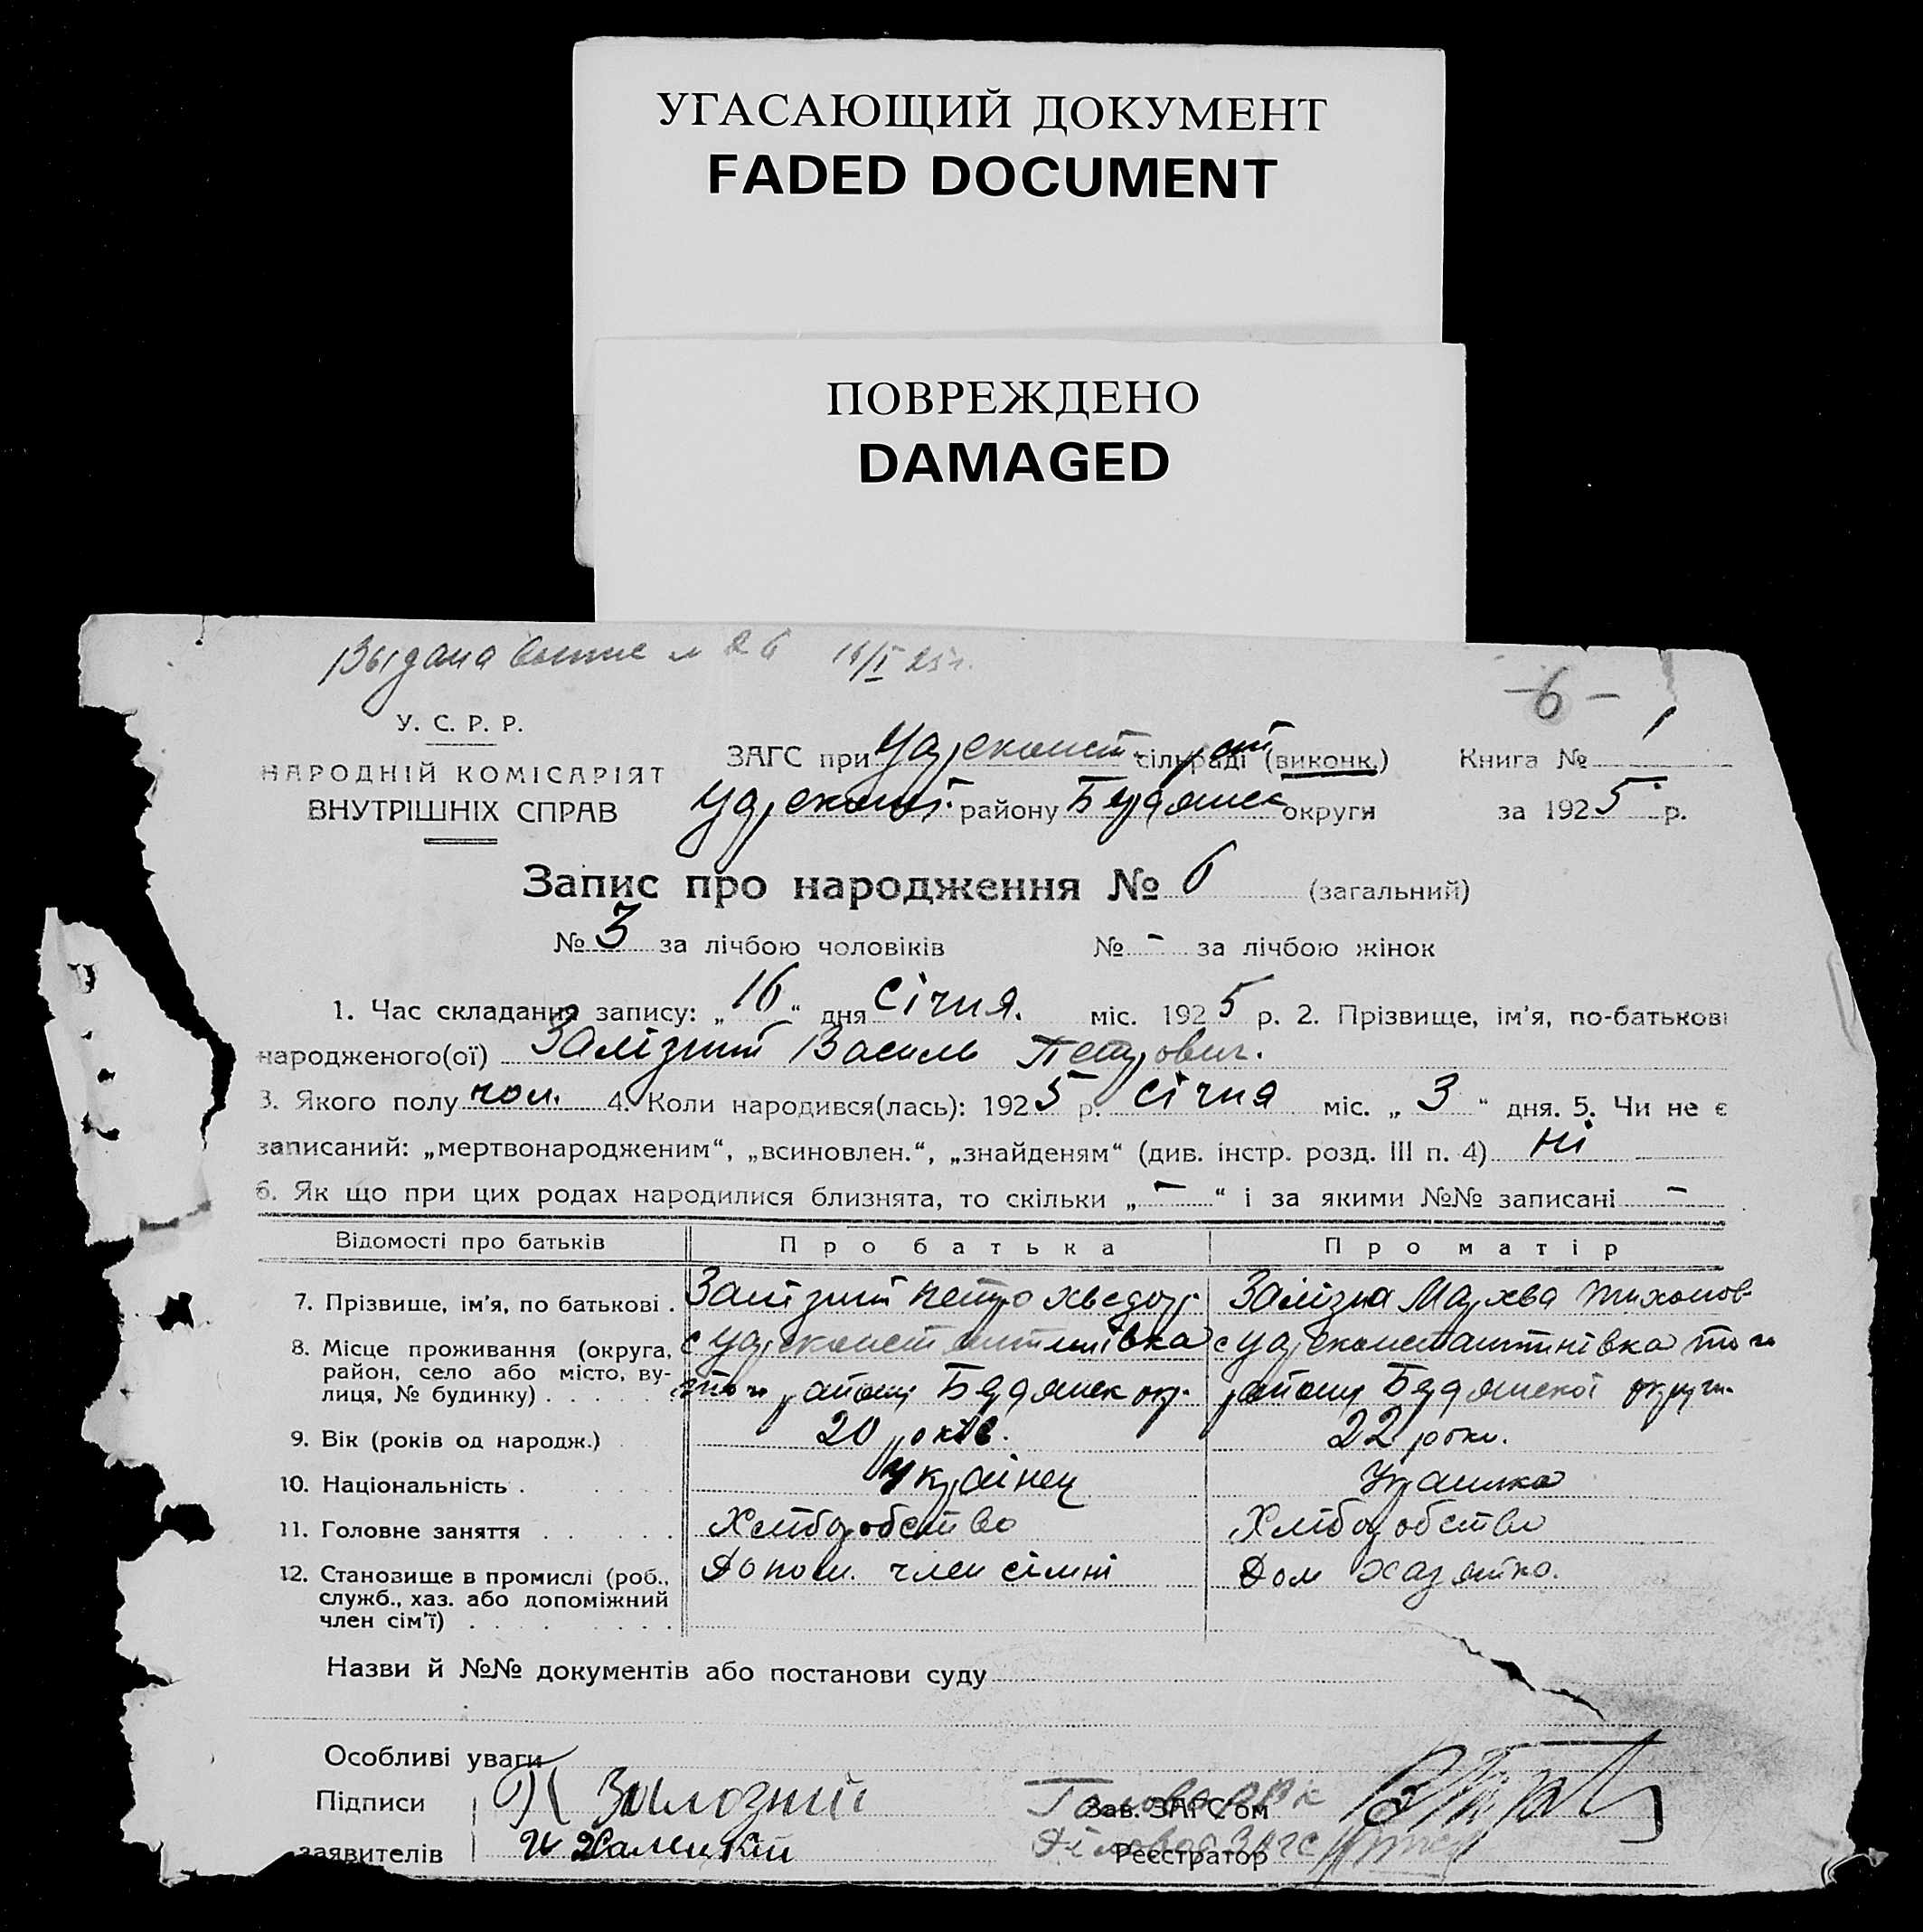 УГАСАЮЩИЙ ДОКУМЕНТ
FADED DOCUMENT
ПОВРЕЖДЕНО
DAMAGED
Выдана
-6-
У. С. Р. Р.
НАРОДНІЙ КОМІСАРІЯТ
ВНУТРІШНІХ СПРАВ
ЗАГС при Цареконст. сільраді (виконк.) Книга № 1
Цареконст. району Бердянськ округи за 1925 р.
Запис про народження № 6 (загальний)
№ 3 за лічбою чоловіків № - за лічбою жінок
1. Час складання запису: „16“ дня Січня. міс. 1925 р. 2. Прізвище, ім'я, по-батькові
народженого(ої) Залізний Василь Петрович.
3. Якого полу чол. 4. Коли народився(лась): 1925 р. Січня міс. „3“ дня. 5. Чи не є
записаний: „мертвонародженим“, „всиновлен.“, „знайденям“ (див. інстр. розд. III п. 4) ні
6. Як що при цих родах народилися близнята, то скільки „-“ і за якими №№ записані -
Відомості про батьків Про батька Про матір
7. Прізвище, ім'я, по батькові . Залізний Петро Хведор. Залізна Мархва Тихонов.
8. Місце проживання (округа, с Цареконстантинівка с Цареконстантинівка того
район, село або місто, ву-
лиця, № будинку) . . . . . . того району Бердянськ окр. району Бердянської округи.
9. Вік (років од народж.) 20 років. 22 роки.
10. Національність . Українец Українка
11. Головне заняття . . . . . Хлібаробство Хлібаробство
12. Становище в промислі (роб., Допом. член сімні Дом хазяйка.
служб., хаз. або допоміжний
член сім'ї) . . . . . . . .
Назви й №№ документів або постанови суду
Особливі уваги
Підписи П Залозний Голова РВК Зав. ЗАГС'ом
заявителів Реєстратор